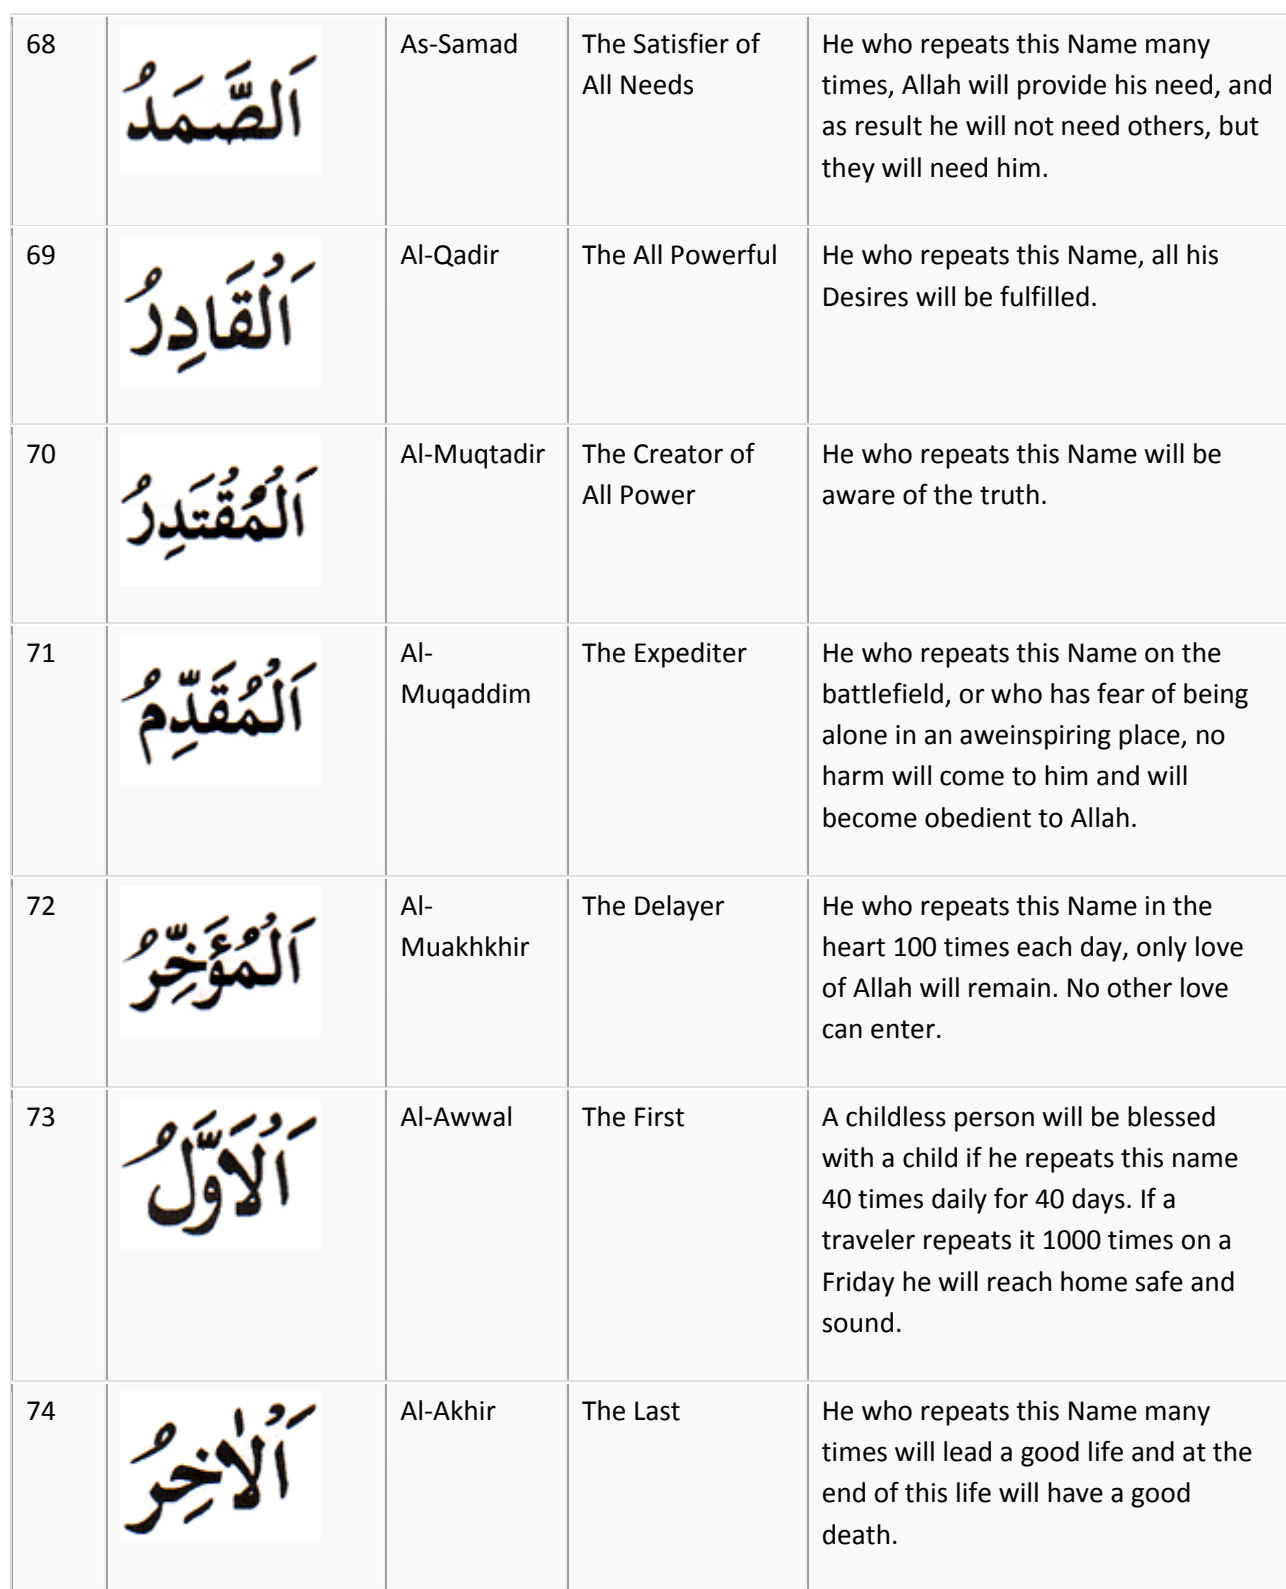 68
اَلصَّمَدُ
As-Samad
The Satisfier of
All Needs
He who repeats this Name many
times, Allah will provide his need, and
as result he will not need others, but
they will need him.
69
اَلْقَادِرُ
Al-Qadir
The All Powerful
He who repeats this Name, all his
Desires will be fulfilled.
70
اَلْمُقْتَدِرُ
Al-Muqtadir
The Creator of
All Power
He who repeats this Name will be
aware of the truth.
71
اَلْمُقَدِّمُ
Al-
Muqaddim
The Expediter
He who repeats this Name on the
battlefield, or who has fear of being
alone in an aweinspiring place, no
harm will come to him and will
become obedient to Allah.
72
اَلْمُؤَخِّرُ
Al-
Muakhkhir
The Delayer
He who repeats this Name in the
heart 100 times each day, only love
of Allah will remain. No other love
can enter.
73
اَلْاَوَّلُ
Al-Awwal
The First
A childless person will be blessed
with a child if he repeats this name
40 times daily for 40 days. If a
traveler repeats it 1000 times on a
Friday he will reach home safe and
sound.
74
اَلْاٰخِرُ
Al-Akhir
The Last
He who repeats this Name many
times will lead a good life and at the
end of this life will have a good
death.